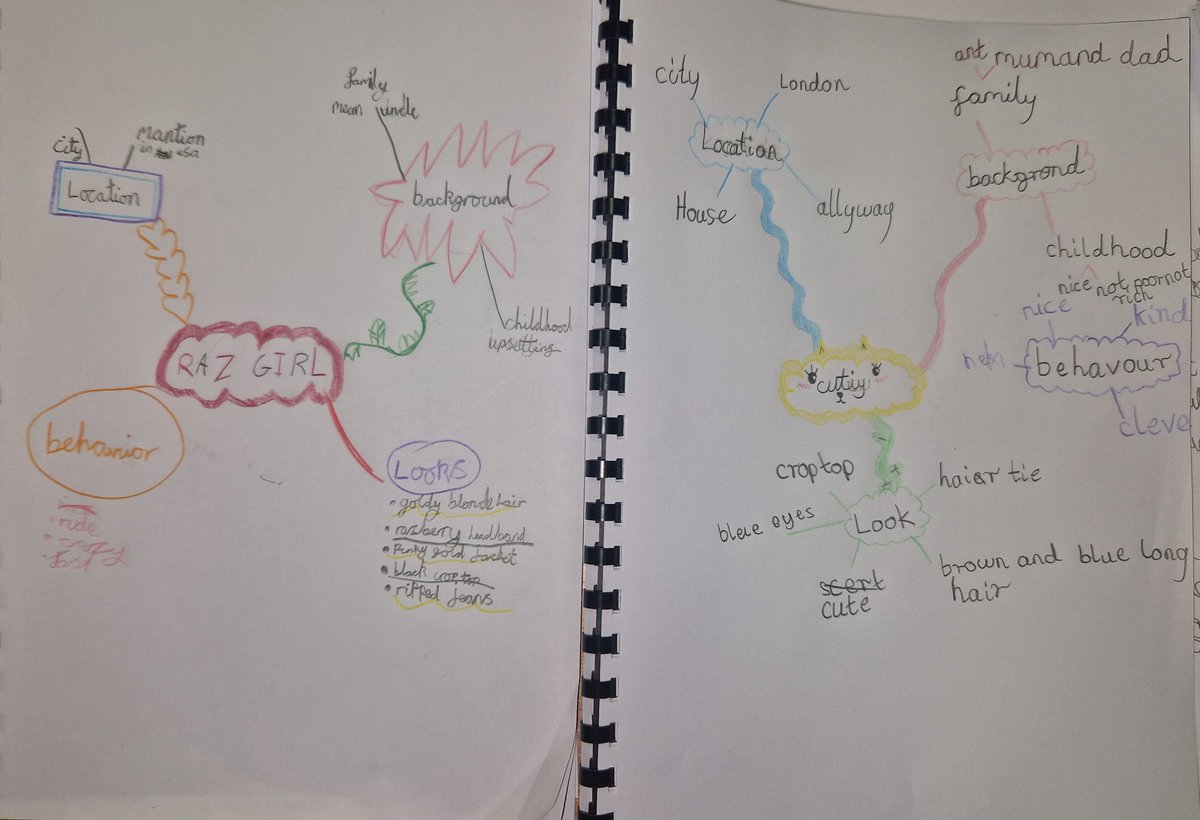 family
mean uncle
city
Mantion
in usa
Location
background
childhood
upsetting
RAZ GIRL
behavior
ride
crazy
fast
Looks
• goldy blonde hair
• razberry headband
• Pinky gold Jacket
• black croptop
• ripped jeans
city
London
Location
House
allyway
ant mumand dad
family
backgrond
childhood
nice not poor not
rich
nice
kind
behavour
cleve
cutiy
croptop
haier tie
blue eyes
Look
scert
cute
brown and blue long
hair